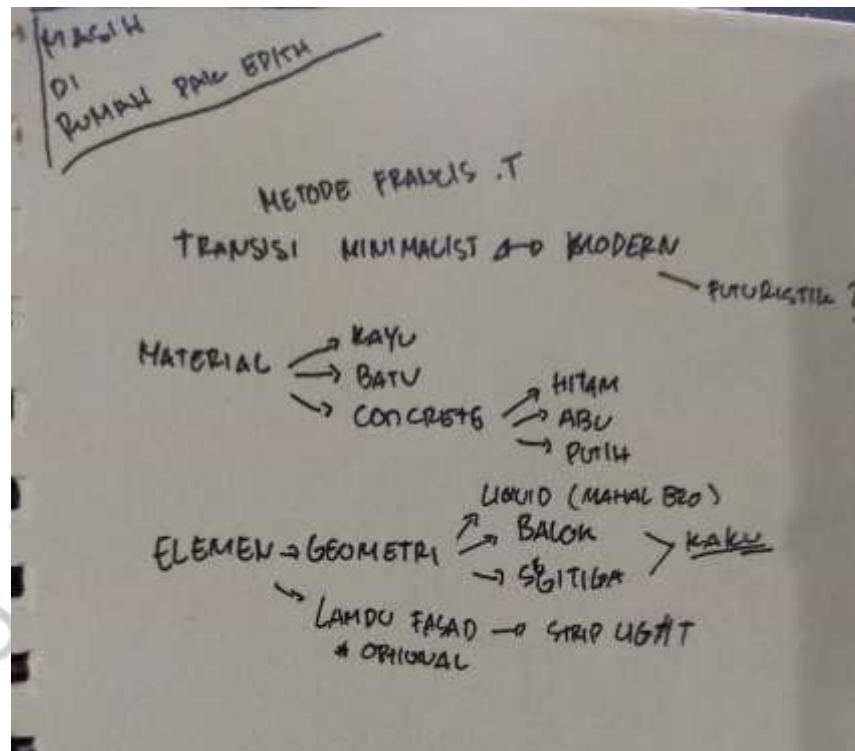 MASIH
DI
RUMAH PAK EDITH
METODE FRANCIS .T
TRANSISI MINIMALIST → MODERN
FUTURISTIK ?
MATERIAL → KAYU
→ BATU
→ CONCRETE → HITAM
→ ABU
→ PUTIH
ELEMEN → GEOMETRI → LIQUID (MAHAL BRO)
→ BALOK
→ SEGITIGA > KAKU
→ LAMPU FASAD → STRIP LIGHT
* OPTIONAL